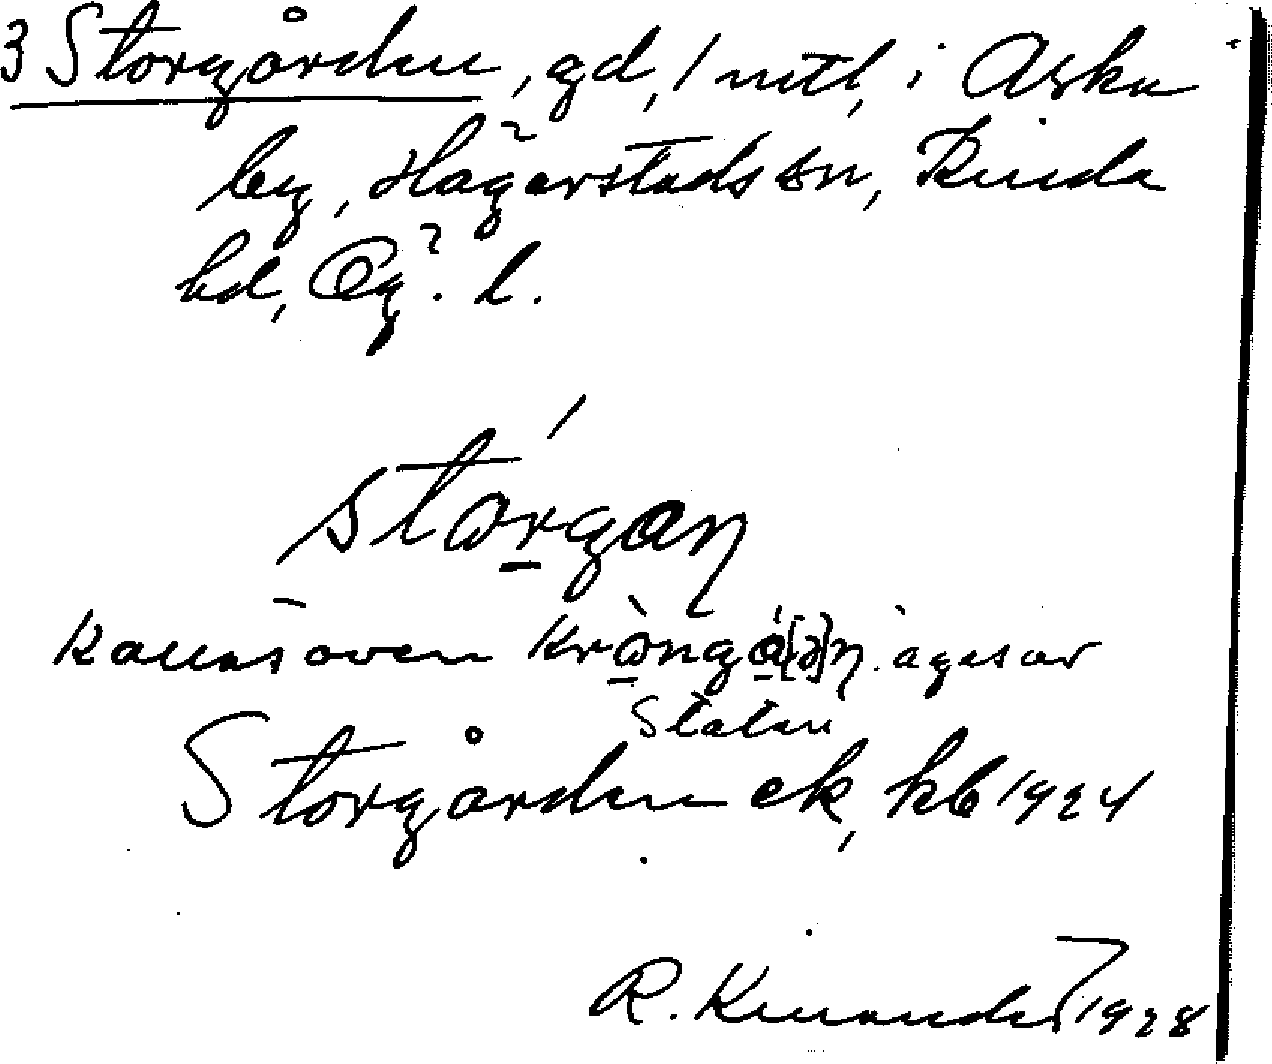 3 Storgården, gd, 1 mtl, i Aska
by, Hägerstads sn, Kinda
hd, Ög. l.
stórgan
även kròngá[ə]n. äges av
Staten
Storgården ek, kb 1924
R. Kinander 1928